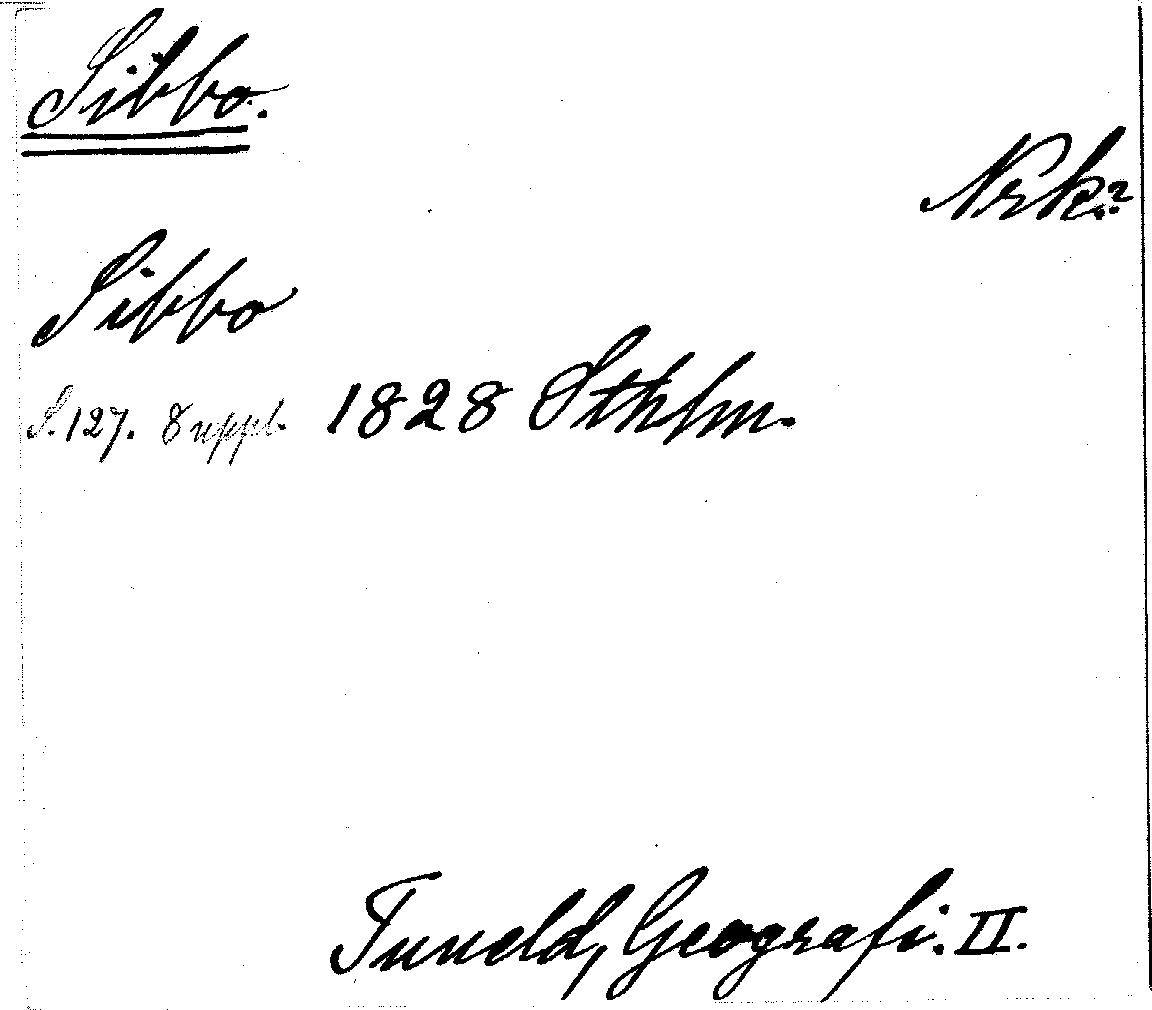 Sibbo.
Nrk.?
Sibbo
S. 127. Suppl. 1828 Sthlm.
Tuneld, Geografi. II.